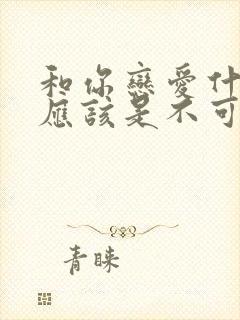 和你戀愛什
應該是不可
青睞